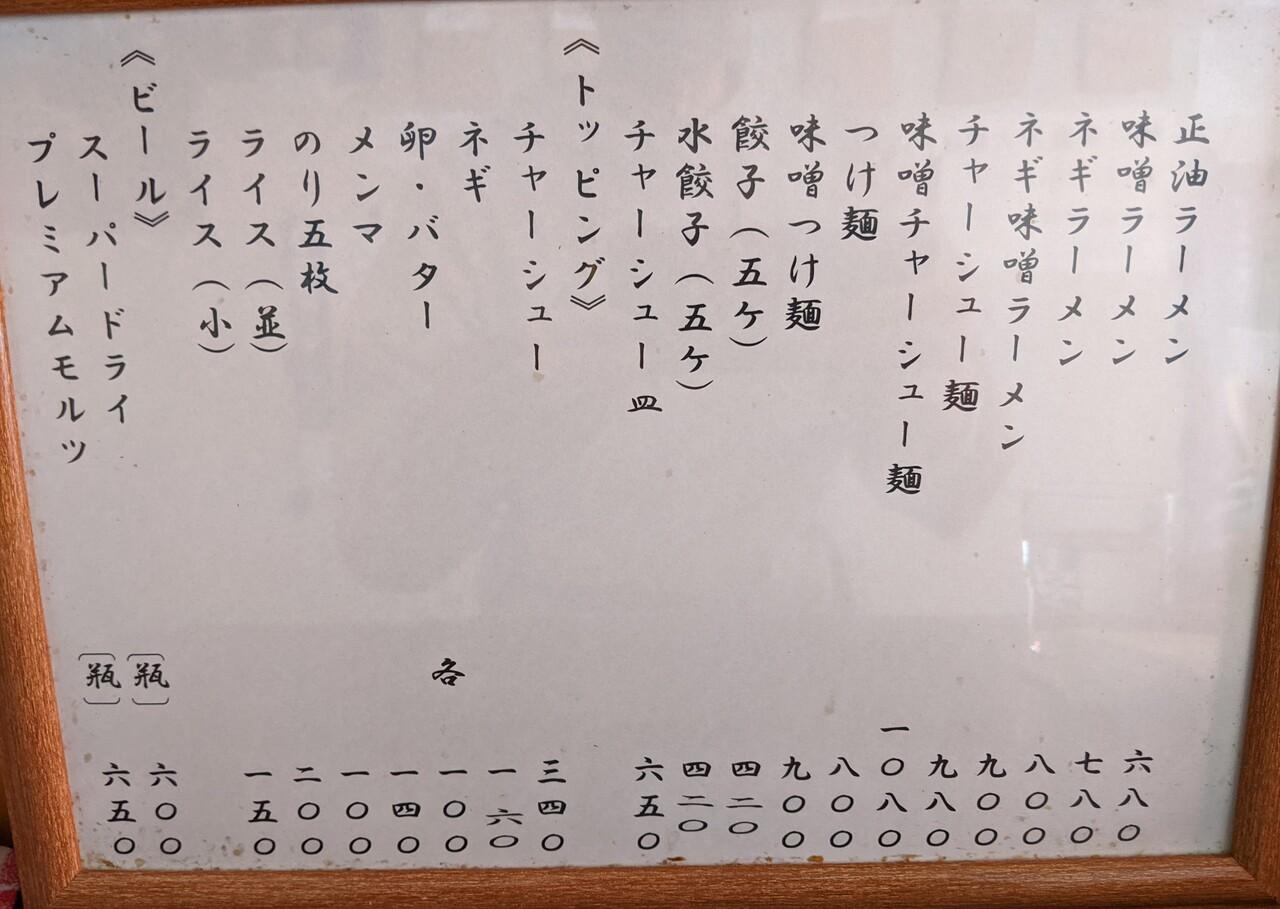 正油ラーメン 六八〇
味噌ラーメン 七八〇
ネギラーメン 八〇〇
ネギ味噌ラーメン 九〇〇
チャーシュー麺 九八〇
味噌チャーシュー麺 一〇八〇
つけ麺 八〇〇
味噌つけ麺 九〇〇
餃子（五ケ） 四二〇
水餃子（五ケ） 四二〇
チャーシュー皿 六五〇
《トッピング》
チャーシュー 三四〇
ネギ 一六〇
卵・バター 各 一〇〇
メンマ 一四〇
のり五枚 一〇〇
ライス（並） 二〇〇
ライス（小） 一五〇
《ビール》
スーパードライ 〔瓶〕 六〇〇
プレミアムモルツ 〔瓶〕 六五〇